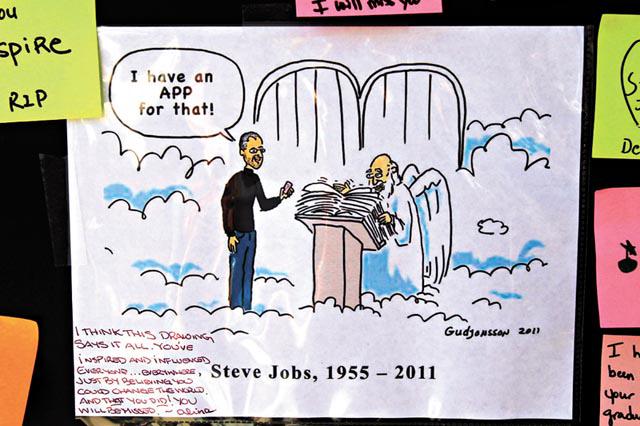 I will miss you
ou
spire
RIP
I have an
APP
for that!
GUDJONSSON 2011
I THINK THIS DRAWING
SAYS IT ALL. YOU'VE
INSPIRED AND INFLUENCED
EVERYONE... EVERYWHERE,
JUST BY BELIEVING YOU
COULD CHANGE THE WORLD,
AND THAT YOU DID! YOU
WILL BE MISSED. ~ alina
Steve Jobs, 1955 – 2011
S
De
I h
been
your
gradu